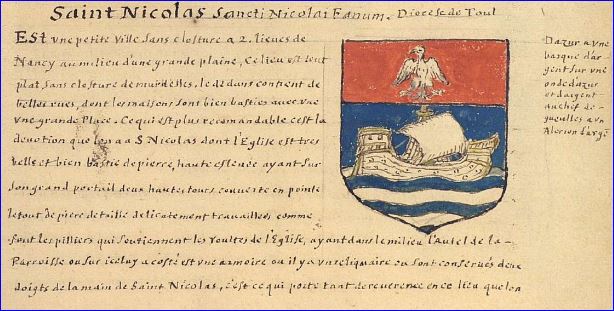 Saint Nicolas Sancti Nicolai Fanum. Diocese de Toul
Est une petite ville sans closture a 2. lieues de
Nancy au milieu d'une grande plaine, ce lieu est tout
plat sans closture de murdelles, le dedans contient de
belles rues, dont les maisons sont bien basties avec une
une grande Place. Ce qui est plus recomandable c'est la
devotion que lon a a S Nicolas dont l'Eglise est tres
belle et bien bastie de pierre, haute eslevée ayant sur
son grand portail deux hautes tours couverte en pointe
le tout de piere de taille delicatement travaillees comme
sont les pilliers qui soutiennent les voultes de l'Eglise, ayant dans le milieu l'autel de la
Paroisse ou sur iceluy a costé est une armoire ou il y a un reliquaire ou sont conserués deux
doigts de la main de Saint Nicolas, c'est ce qui porte tant de reverence en ce lieu que lon
Dazur a une
barque d'ar
gent sur une
onde dazur
et dargent
au chef de
gueulles a un
Alerion d'argẽ